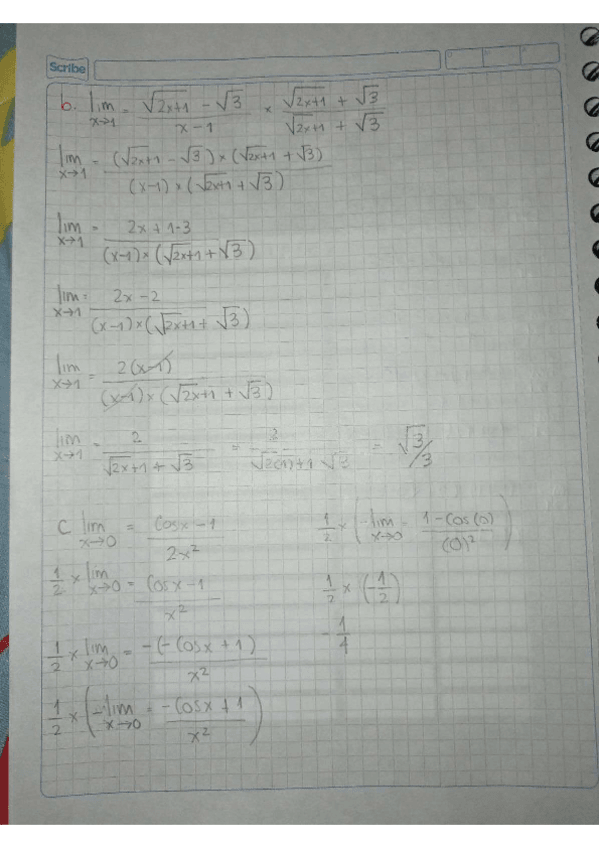 Scribe
b. lim x→1 = √2x+1 - √3 / x-1 × √2x+1 + √3 / √2x+1 + √3
lim x→1 = (√2x+1 - √3) × (√2x+1 + √3) / (x-1) × (√2x+1 + √3)
lim x→1 = 2x + 1-3 / (x-1) × (√2x+1 + √3)
lim x→1 = 2x - 2 / (x-1) × (√2x+1 + √3)
lim x→1 = 2(x-1) / (x-1) × (√2x+1 + √3)
lim x→1 = 2 / √2x+1 + √3 = 2 / √2(1)+1 √3 = √3/3
C lim x→0 = Cosx - 1 / 2x²
1/2 × lim x→0 = Cosx - 1 / x²
1/2 × lim x→0 = -(-Cosx + 1) / x²
1/2 × (-lim x→0 = -Cosx + 1 / x²)
1/2 × (-lim x→0 = 1 - Cos(0) / (0)²)
1/2 × (-1/2)
-1/4